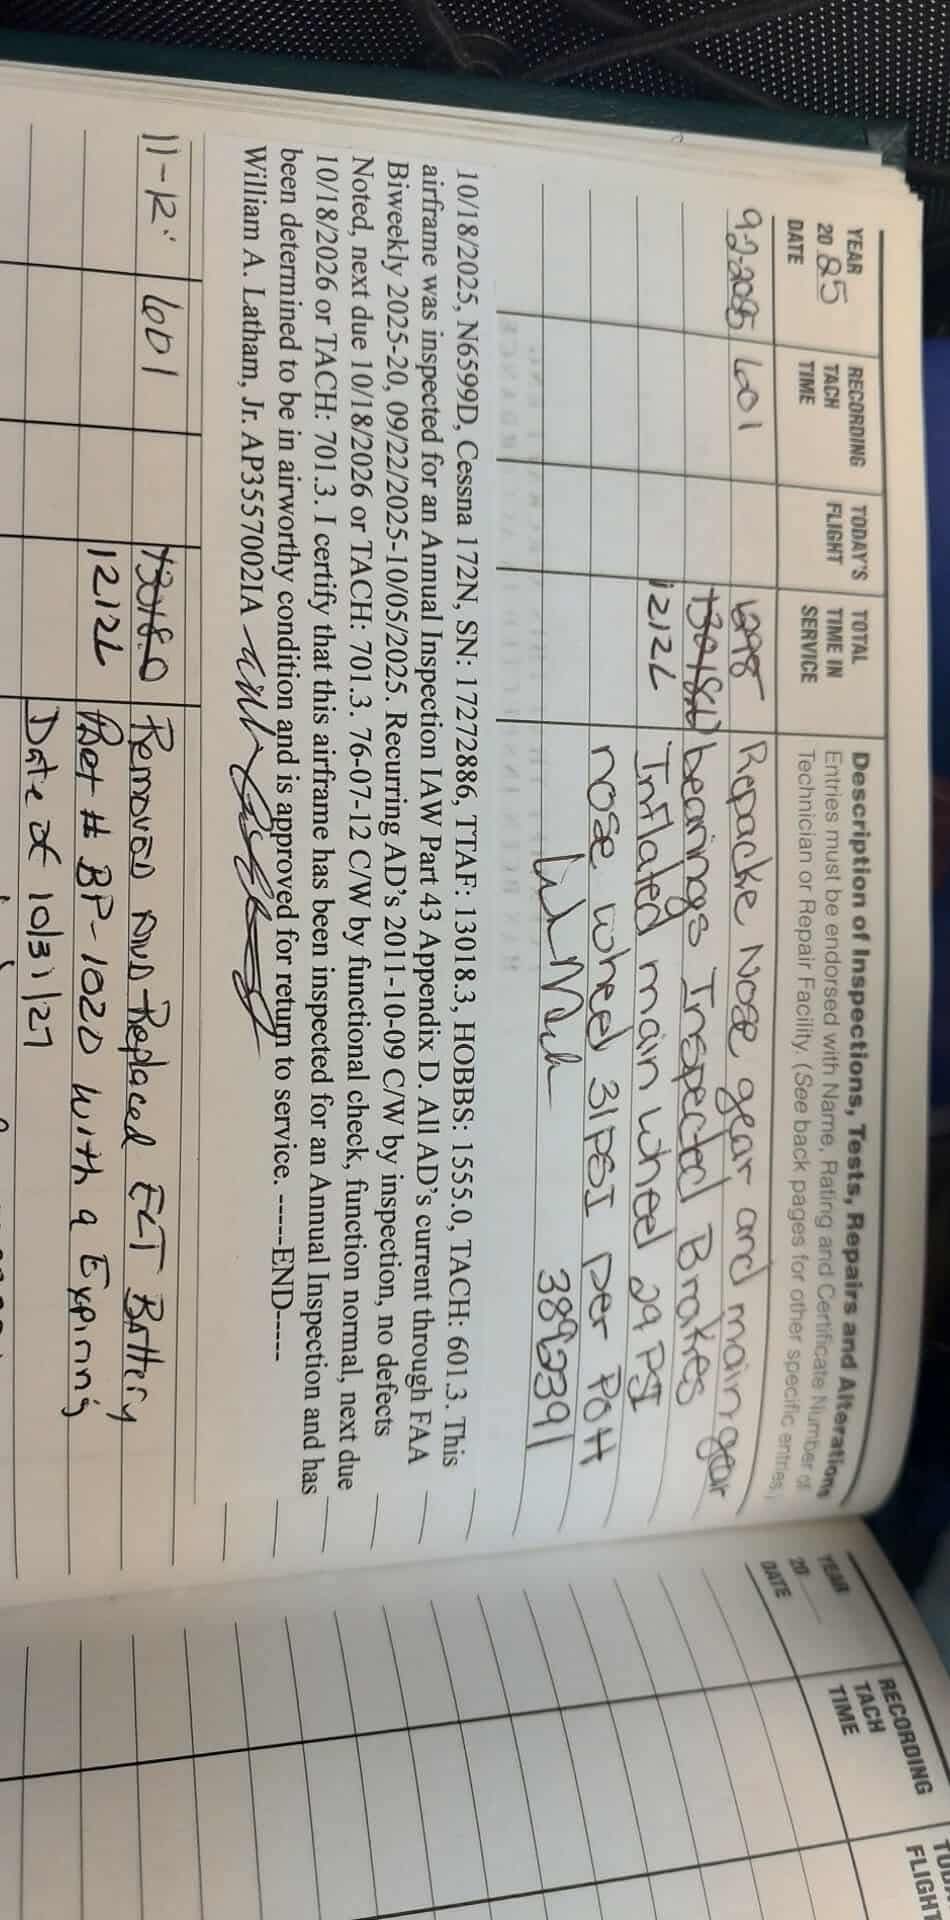 YEAR 20 25 DATE
RECORDING TACH TIME
TODAY'S FLIGHT
TOTAL TIME IN SERVICE
Description of Inspections, Tests, Repairs and Alterations
Entries must be endorsed with Name, Rating and Certificate Number of
Technician or Repair Facility. (See back pages for other specific entries.)
9-2-2025 601 Repacke Nose gear and main gear
bearings Inspected Brakes
12122 Inflated main wheel 29 PSI
nose wheel 31 PSI per POH
3892391
10/18/2025, N6599D, Cessna 172N, SN: 17272886, TTAF: 13018.3, HOBBS: 1555.0, TACH: 601.3. This
airframe was inspected for an Annual Inspection IAW Part 43 Appendix D. All AD's current through FAA
Biweekly 2025-20, 09/22/2025-10/05/2025. Recurring AD's 2011-10-09 C/W by inspection, no defects
Noted, next due 10/18/2026 or TACH: 701.3. 76-07-12 C/W by functional check, function normal, next due
10/18/2026 or TACH: 701.3. I certify that this airframe has been inspected for an Annual Inspection and has
been determined to be in airworthy condition and is approved for return to service. -----END-----
William A. Latham, Jr. AP3557002IA
601 Removed and Replaced ELT Battery
12122 Bat # BP-1020 with a Expiring
Date of 10/31/27
YEAR 20 DATE
RECORDING TACH TIME
FLIGHT